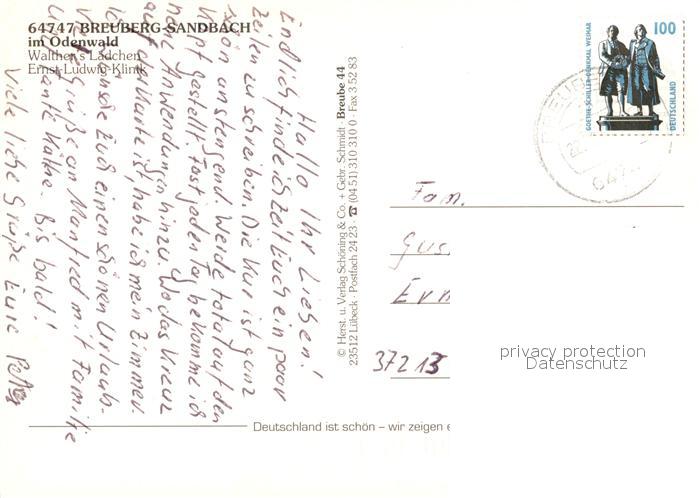 64747 BREUBERG-SANDBACH
im Odenwald
Walther's Lädchen
Ernst-Ludwig-Klinik
Hallo Ihr Lieben!
Endlich finde ich Zeit Euch ein paar
Zeilen zu schreiben. Die Kur ist ganz
schön anstrengend. Werde total auf den
Kopf gestellt. Fast jeden Tag bekomme ich
neue Anwendungen hinzu. Wo das Kreuz
auf der Karte ist, habe ich mein Zimmer.
Wünsche Euch einen schönen Urlaub.
Grüße an Manfred m. Familie
Tante Käthe. Bis bald!
Viele liebe Grüße Eure
© Herst. u. Verlag Schöning & Co. + Gebr. Schmidt · Breube 44
23512 Lübeck · Postfach 24 23 · ☎ (04 51) 310 310 0 · Fax 3 52 83
GOETHE-SCHILLER-DENKMAL WEIMAR
100
DEUTSCHLAND
Fam.
Gus
37213
privacy protection
Datenschutz
Deutschland ist schön – wir zeigen e